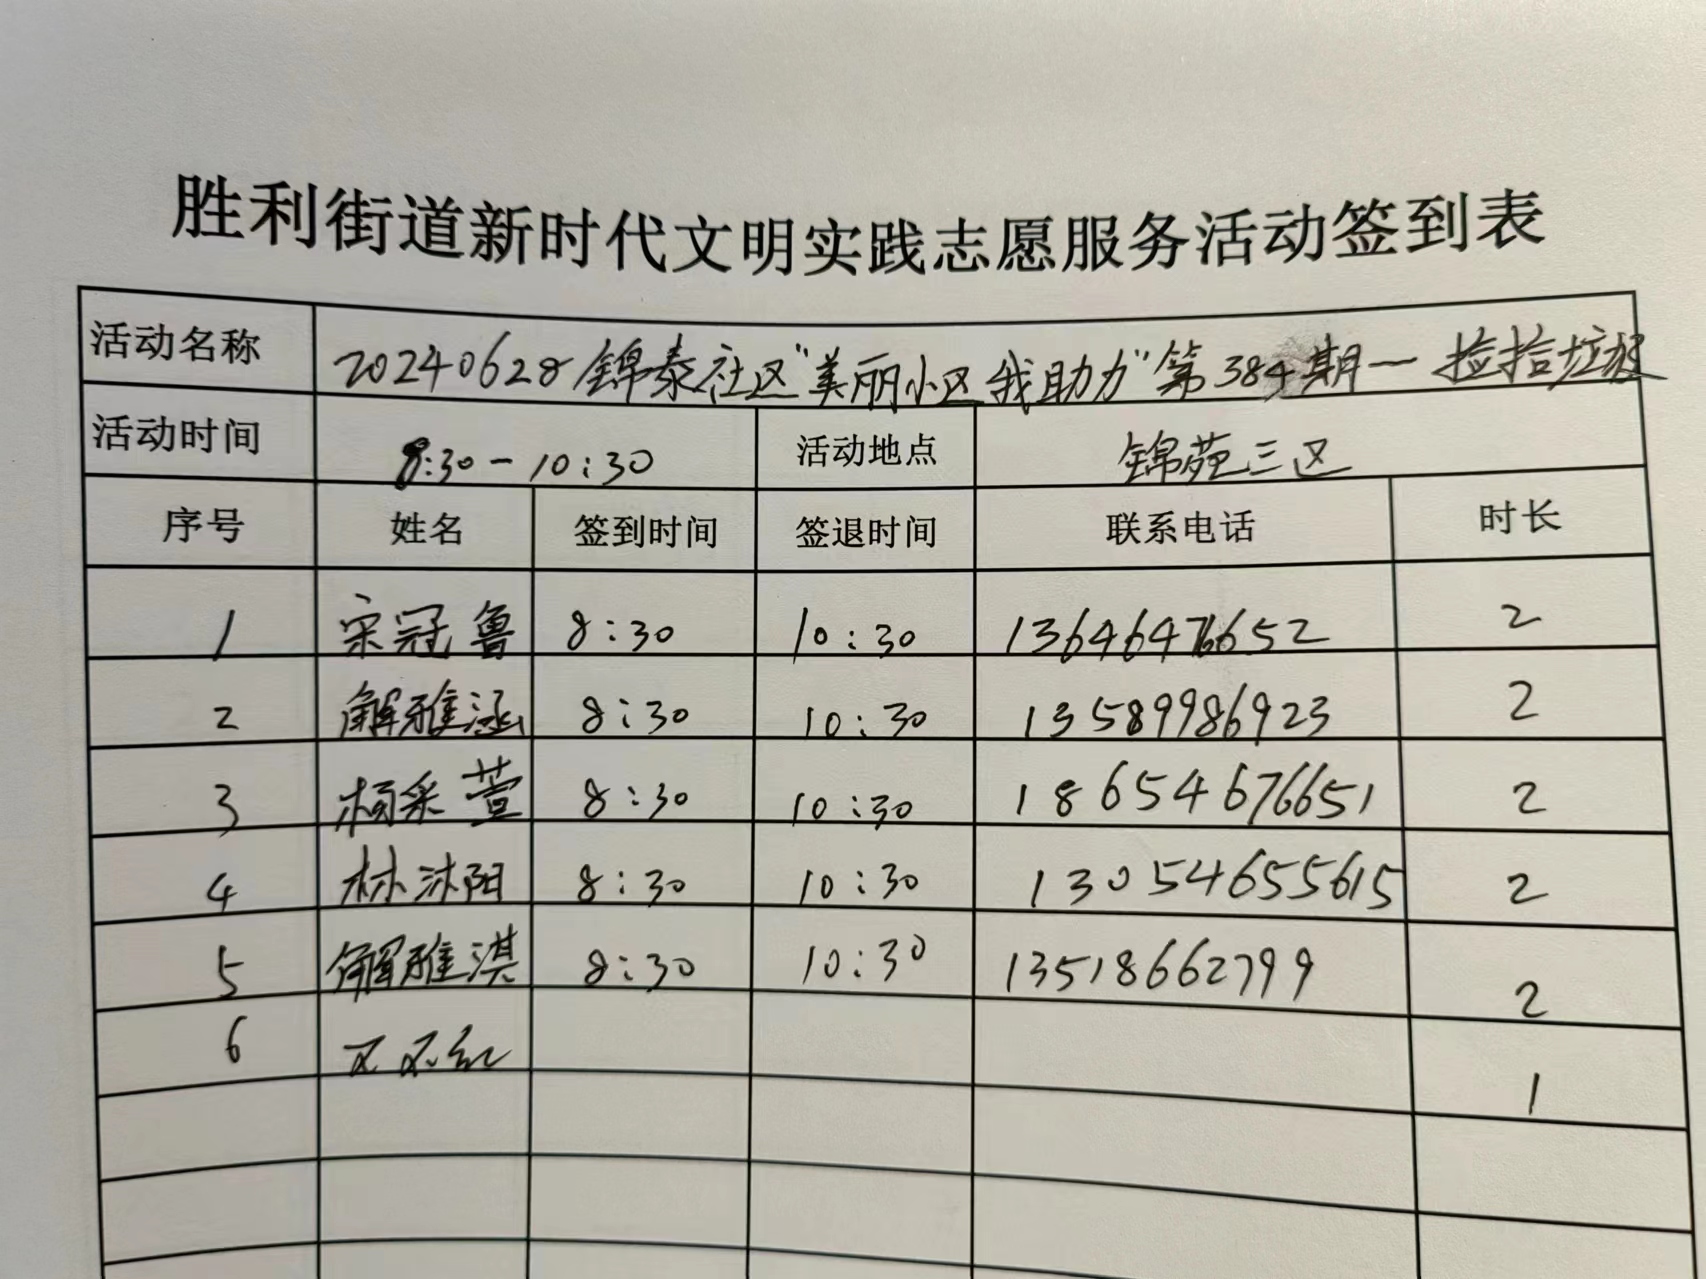 胜利街道新时代文明实践志愿服务活动签到表
活动名称 20240628锦泰社区"美丽小区我助力"第384期一捡拾垃圾
活动时间 8:30-10:30 活动地点 锦苑三区
序号 姓名 签到时间 签退时间 联系电话 时长
1 宋冠鲁 8:30 10:30 13646476652 2
2 解雅涵 8:30 10:30 13589986923 2
3 杨采萱 8:30 10:30 18654676651 2
4 林沐阳 8:30 10:30 13054655615 2
5 解雅淇 8:30 10:30 13518662799 2
6 1